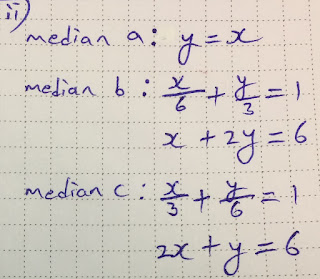 ii)
median a: y = x
median b: x/6 + y/3 = 1
x + 2y = 6
median c: x/3 + y/6 = 1
2x + y = 6